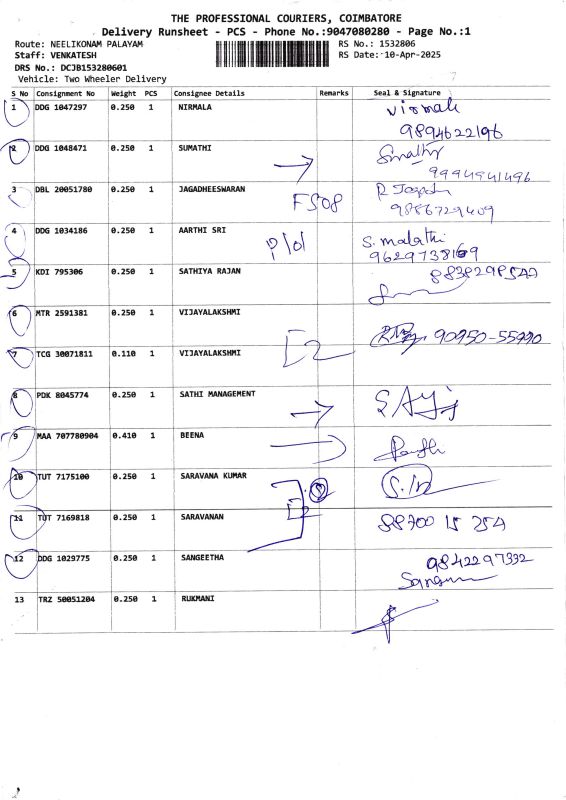 THE PROFESSIONAL COURIERS, COIMBATORE
Delivery Runsheet - PCS - Phone No.:9047080280 - Page No.:1
Route: NEELIKONAM PALAYAM RS No.: 1532806
Staff: VENKATESH RS Date:10-Apr-2025
DRS No.: DCJB153280601
Vehicle: Two Wheeler Delivery
S No Consignment No Weight PCS Consignee Details Remarks Seal & Signature
1 DDG 1047297 0.250 1 NIRMALA Nirmala
9894622196
2 DDG 1048471 0.250 1 SUMATHI Sumathy
9994941496
3 DBL 20051780 0.250 1 JAGADHEESWARAN FS08
9886729409
4 DDG 1034186 0.250 1 AARTHI SRI S. malathi
9629738169
5 KDI 795306 0.250 1 SATHIYA RAJAN
6 MTR 2591381 0.250 1 VIJAYALAKSHMI
90950-55990
7 TCG 30071811 0.110 1 VIJAYALAKSHMI
8 PDK 8045774 0.250 1 SATHI MANAGEMENT
9 MAA 707780904 0.410 1 BEENA
10 TUT 7175100 0.250 1 SARAVANA KUMAR
11 TUT 7169818 0.250 1 SARAVANAN 88700 15 254
12 DDG 1029775 0.250 1 SANGEETHA 9842297332
13 TRZ 50051204 0.250 1 RUKMANI